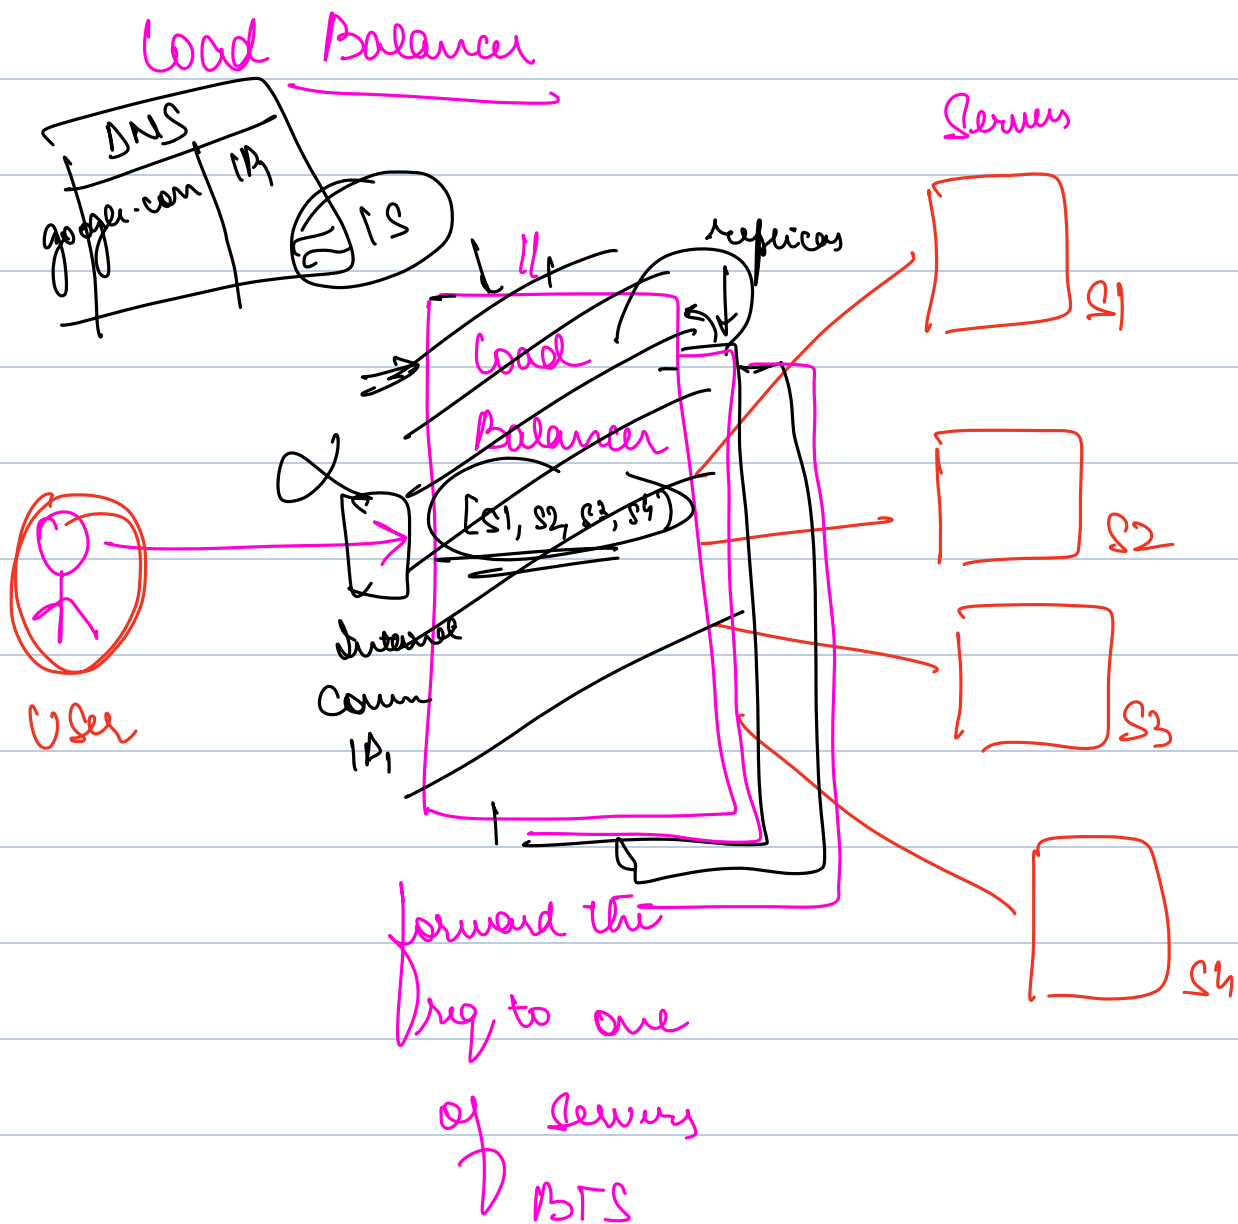 Load Balancer
DNS
google.com IP1
IS
Servers
replicas
S1
Load
Balancer
[S1, S2, S3, S4]
S2
Internet
Comm
IP1
User
S3
forward the
S4
req to one
of servers
BTS